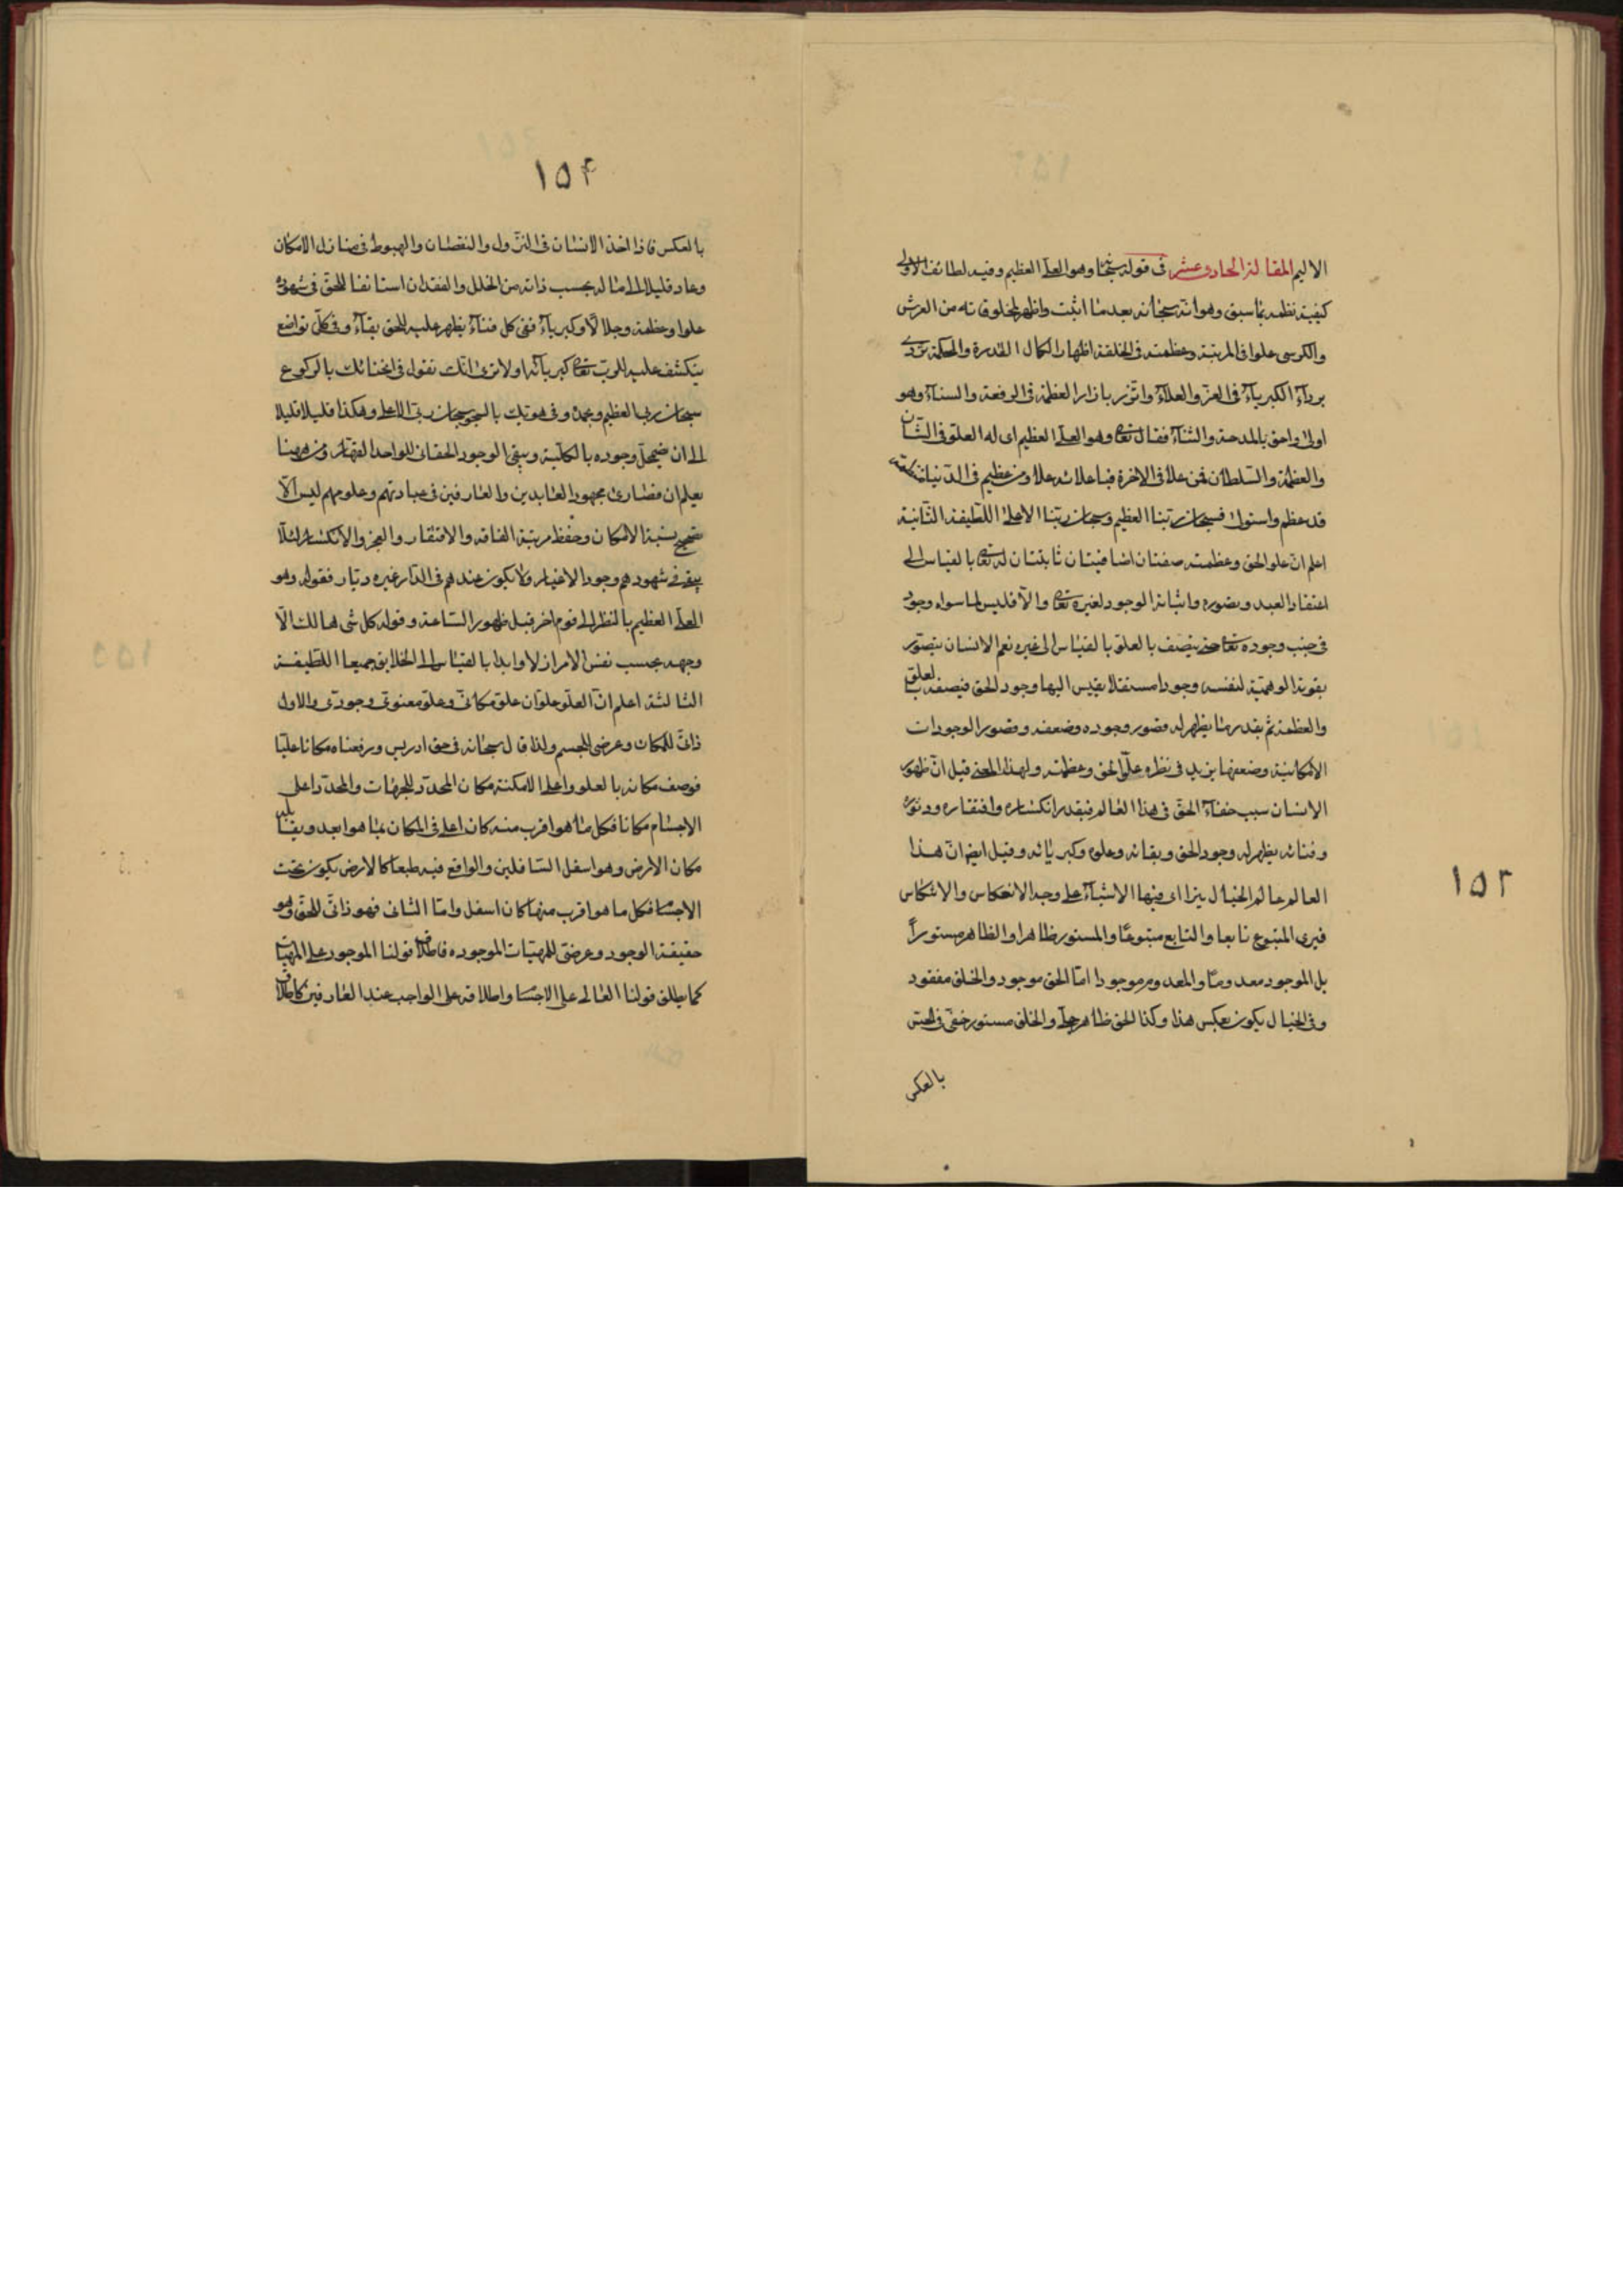 الاليم المقالة الحادوعشر فى قوله سبحانه وهو العلى العظيم وفيه لطائف الاولى
كيفية نظمه بما سبق وهو انه سبحانه بعد ما اثبت واظهر لمخلوقاته من العرش
والكرسى علوا فى المرتبة وعظمته فى الخلقة اظهارا لكمال القدرة والحكمة تردى
برداء الكبرياء فى العز والعلاء واتزر بازار العظمة فى الرفعة والسناء وهو
اولى واحق بالمدحة والثناء فقال تعالى وهو العلى العظيم اى له العلو فى الشأن
والعظمة والسلطان فمن علا فى الاخرة فباعلائه علا ومن عظيم فى الدنيا
قد عظم واستولى فسبحان ربنا العظيم وسبحان ربنا الاعلى اللطيفة الثانية
اعلم ان علو الحق وعظمته صفتان اضافيتان ثابتتان له تعالى بالقياس الى
اعتقاد العبد وتصوره واثباته الوجود لغيره تعالى والا فليس لما سواه وجود
فى جنب وجوده تعالى حتى يتصف بالعلو بالقياس الى غيره نعم الانسان يتصور
بقوته الوهمية لنفسه وجودا مستقلا يقيس اليها وجود الحق فيصفه بالعلو
والعظمة ثم بقدر ما يظهر له قصور وجوده وضعفه وقصور الوجودات
الامكانية وضعفها يزيد فى نظره علو الحق وعظمته ولهذا المعنى قيل ان ظهور
الانسان سبب خفاء الحق فى هذا العالم فبقدر انكساره وافتقاره ودثوره
وفنائه يظهر له وجود الحق وبقائه وعلوه وكبريائه وقيل ايضا ان هذا
العالم عالم الخيال يتراءى فيها الاشياء على وجه الانعكاس والانتكاس
فيرى المتبوع تابعا والتابع متبوعا والمستور ظاهرا والظاهر مستوراً
بل الموجود معدوما والمعدوم موجودا اما الحق موجود والخلق مفقود
وفى الخيال يكون بعكس هذا وكذا الحق ظاهر جلى والخلق مستور خفى فى الحس
بالعكس
١٥٢
١٥۴
بالعكس فاذا اخذ الانسان فى النزول والنقصان والهبوط فى منازل الامكان
وعاد قليلا الى ما له بحسب ذاته من الخلل والفقدان استانفا للحق فى شهوده
علوا وعظمة وجلالا وكبرياء ففى كل فناء يظهر عليه للحق بقاء وفى كل تواضع
ينكشف عليه للرب تعالى كبريائه اولا ترى انك تقول فى انحنائك بالركوع
سبحان ربى العظيم وبحمده وفى هويك بالسجود سبحان ربى الاعلى وهكذا قليلا قليلا
الى ان يضمحل وجوده بالكلية ويبقى الوجود الحقانى للواحد القهار ومن هيهنا
يعلم ان قصارى مجهود العابدين والعارفين فى عبادتهم وعلومهم ليس الا
تصحيح نسبة الامكان وحفظ مرتبة الفاقة والافتقار والعجز والانكسار لئلا
يبقى فى شهودهم وجود الاغيار ولا يكون عندهم فى الدار غيره ديار فقوله وهو
العلى العظيم بالنظر الى قوم اخر قبل ظهور الساعة وقوله كل شى هالك الا
وجهه بحسب نفس الامر ازلا وابدا بالقياس الى الخلايق جميعا اللطيفة
الثالثة اعلم ان العلو علوان علو مكانى وعلو معنوى وجودى والاول
ذاتى للمكان وعرضى للجسم ولذا قال سبحانه فى حق ادريس ورفعناه مكانا عليا
فوصف مكانه بالعلو واعلى الامكنة مكان المحدد للجهات والمحدد اعلى
الاجسام مكانا فكل ما هو اقرب منه كان اعلى فى المكان بما هو ابعد ويقابله
مكان الارض وهو اسفل السافلين والواقع فيه طبعا كالارض يكون تحت
الاجسام فكل ما هو اقرب منها كان اسفل واما الثانى فهو ذاتى للحق وهو
حقيقة الوجود وعرضى للمهيات الموجوده فاطلاق قولنا الموجود على المهيات
كما يطلق قولنا العالى على الاجسام واطلاقه على الواجب عند العارفين كاطلاق